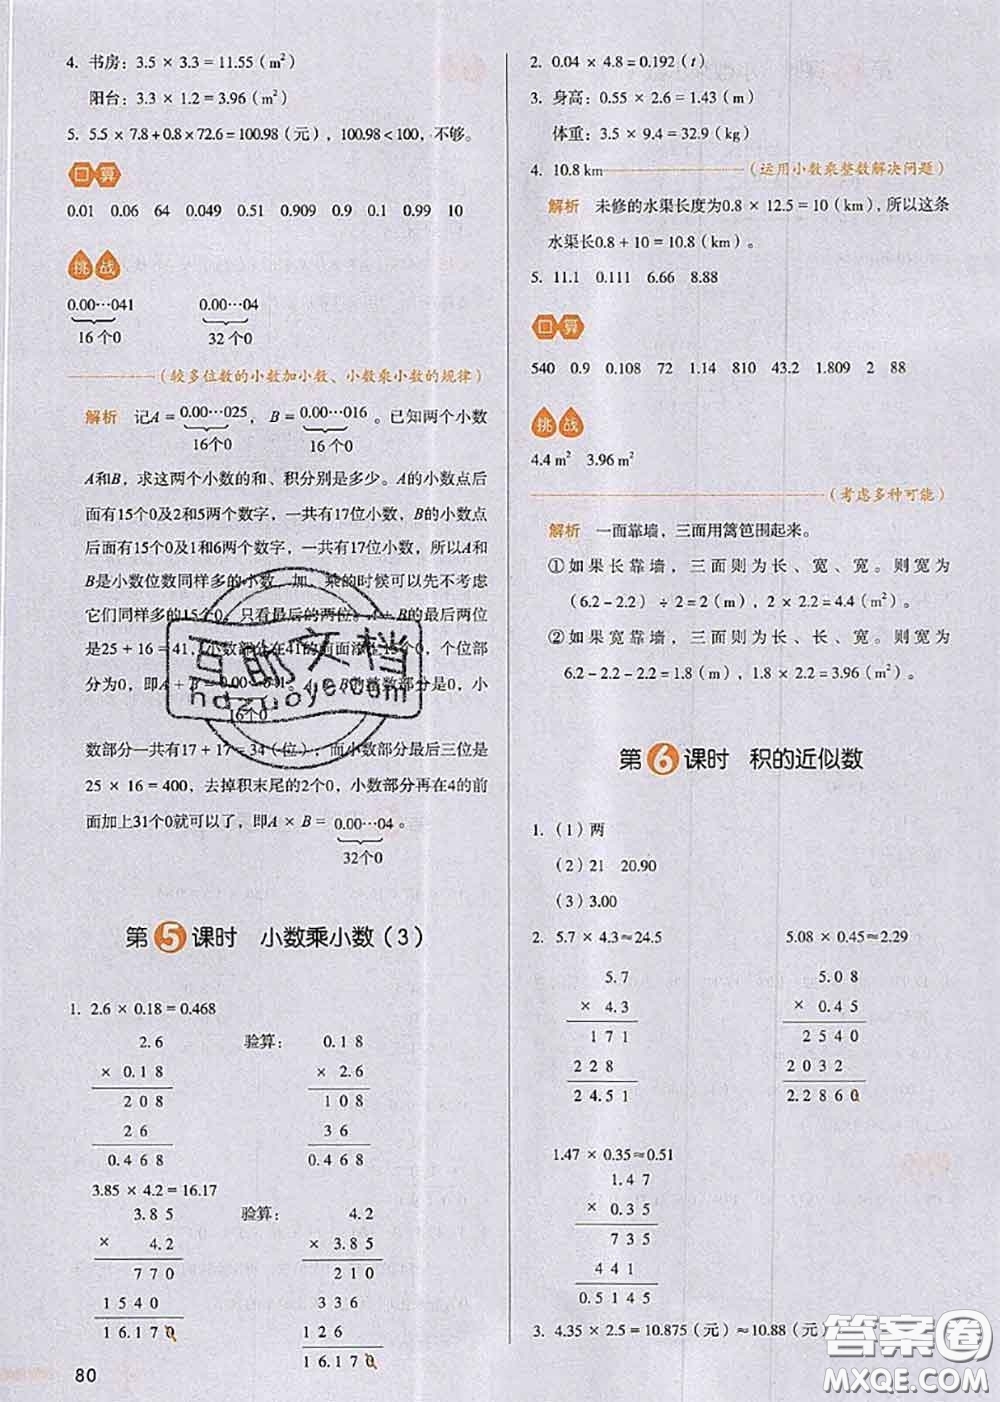 4. 书房：3.5 × 3.3 = 11.55（m²）
阳台：3.3 × 1.2 = 3.96（m²）
5. 5.5 × 7.8 + 0.8 × 72.6 = 100.98（元），100.98 < 100，不够。
口算
0.01 0.06 64 0.049 0.51 0.909 0.9 0.1 0.99 10
挑战
0.00…041 0.00…04
16个0 32个0
（较多位数的小数加小数、小数乘小数的规律）
解析 记A = 0.00…025，B = 0.00…016。已知两个小数
16个0 16个0
A和B，求这两个小数的和、积分别是多少。A的小数点后
面有15个0及2和5两个数字，一共有17位小数，B的小数点
后面有15个0及1和6两个数字，一共有17位小数，所以A和
B是小数位数同样多的小数，加、乘的时候可以先不考虑
它们同样多的0，只看最后的两位。A + B的最后两位
是25 + 16 = 41，小数部分在41的前面添上15个0，个位部
分为0，即A + B = 0.00…041。A × B的整数部分是0，小
16个0
数部分一共有17 + 17 = 34（位），而小数部分最后三位是
25 × 16 = 400，去掉积末尾的2个0，小数部分再在4的前
面加上31个0就可以了，即A × B = 0.00…04。
32个0
第5课时 小数乘小数（3）
1. 2.6 × 0.18 = 0.468
2.6 验算： 0.18
× 0.18 × 2.6
208 108
26 36
0.468 0.468
3.85 × 4.2 = 16.17
3.85 验算： 4.2
× 4.2 × 3.85
770 210
1540 336
16.170 126
16.170
80
2. 0.04 × 4.8 = 0.192（t）
3. 身高：0.55 × 2.6 = 1.43（m）
体重：3.5 × 9.4 = 32.9（kg）
4. 10.8 km （运用小数乘整数解决问题）
解析 未修的水渠长度为0.8 × 12.5 = 10（km），所以这条
水渠长0.8 + 10 = 10.8（km）。
5. 11.1 0.111 6.66 8.88
口算
540 0.9 0.108 72 1.14 810 43.2 1.809 2 88
挑战
4.4 m² 3.96 m²
（考虑多种可能）
解析 一面靠墙，三面用篱笆围起来。
①如果长靠墙，三面则为长、宽、宽。则宽为
（6.2 – 2.2）÷ 2 = 2（m），2 × 2.2 = 4.4（m²）。
②如果宽靠墙，三面则为长、长、宽。则宽为
6.2 – 2.2 – 2.2 = 1.8（m），1.8 × 2.2 = 3.96（m²）。
第6课时 积的近似数
1.（1）两
（2）21 20.90
（3）3.00
2. 5.7 × 4.3 ≈ 24.5 5.08 × 0.45 ≈ 2.29
5.7 5.08
× 4.3 × 0.45
171 2540
228 2032
24.51 2.2860
1.47 × 0.35 ≈ 0.51
1.47
× 0.35
735
441
0.5145
3. 4.35 × 2.5 = 10.875（元）≈ 10.88（元）
互助文档
hdzuoye.com
答案圈
MXQE.COM